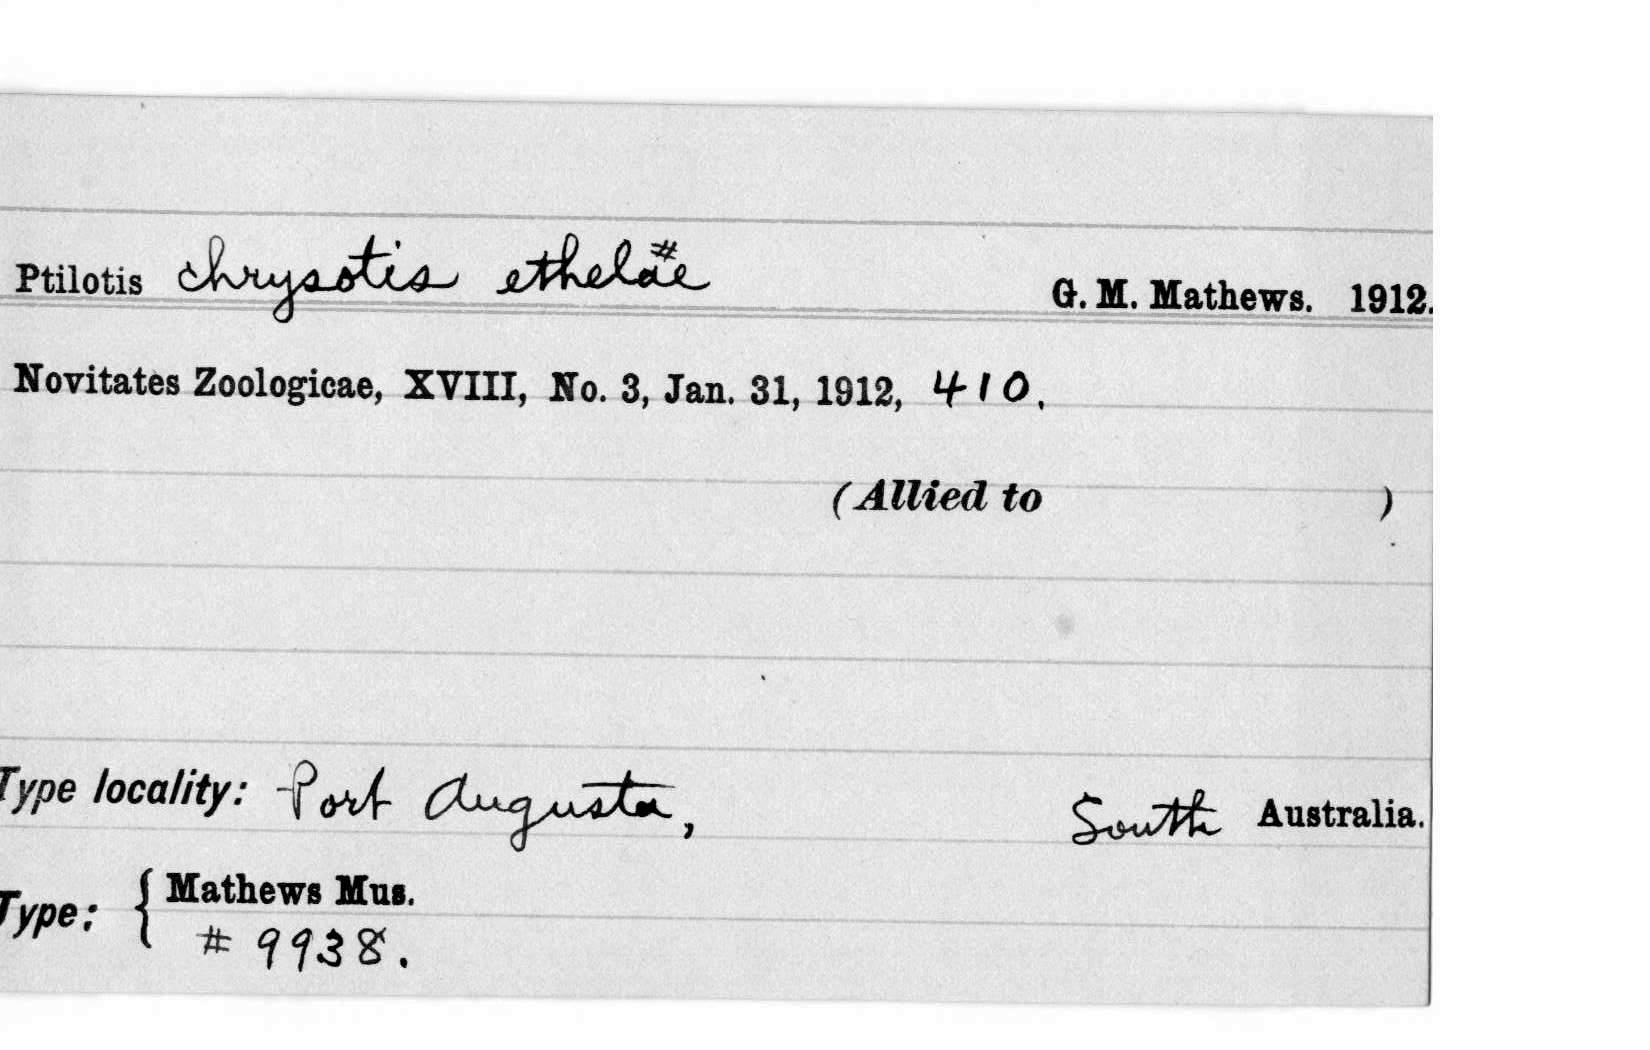 Ptilotis chrysotis ethelae # G. M. Mathews. 1912.
Novitates Zoologicae, XVIII, No. 3, Jan. 31, 1912, 410.
(Allied to )
Type locality: Port Augusta, South Australia.
Type: { Mathews Mus.
# 9938.